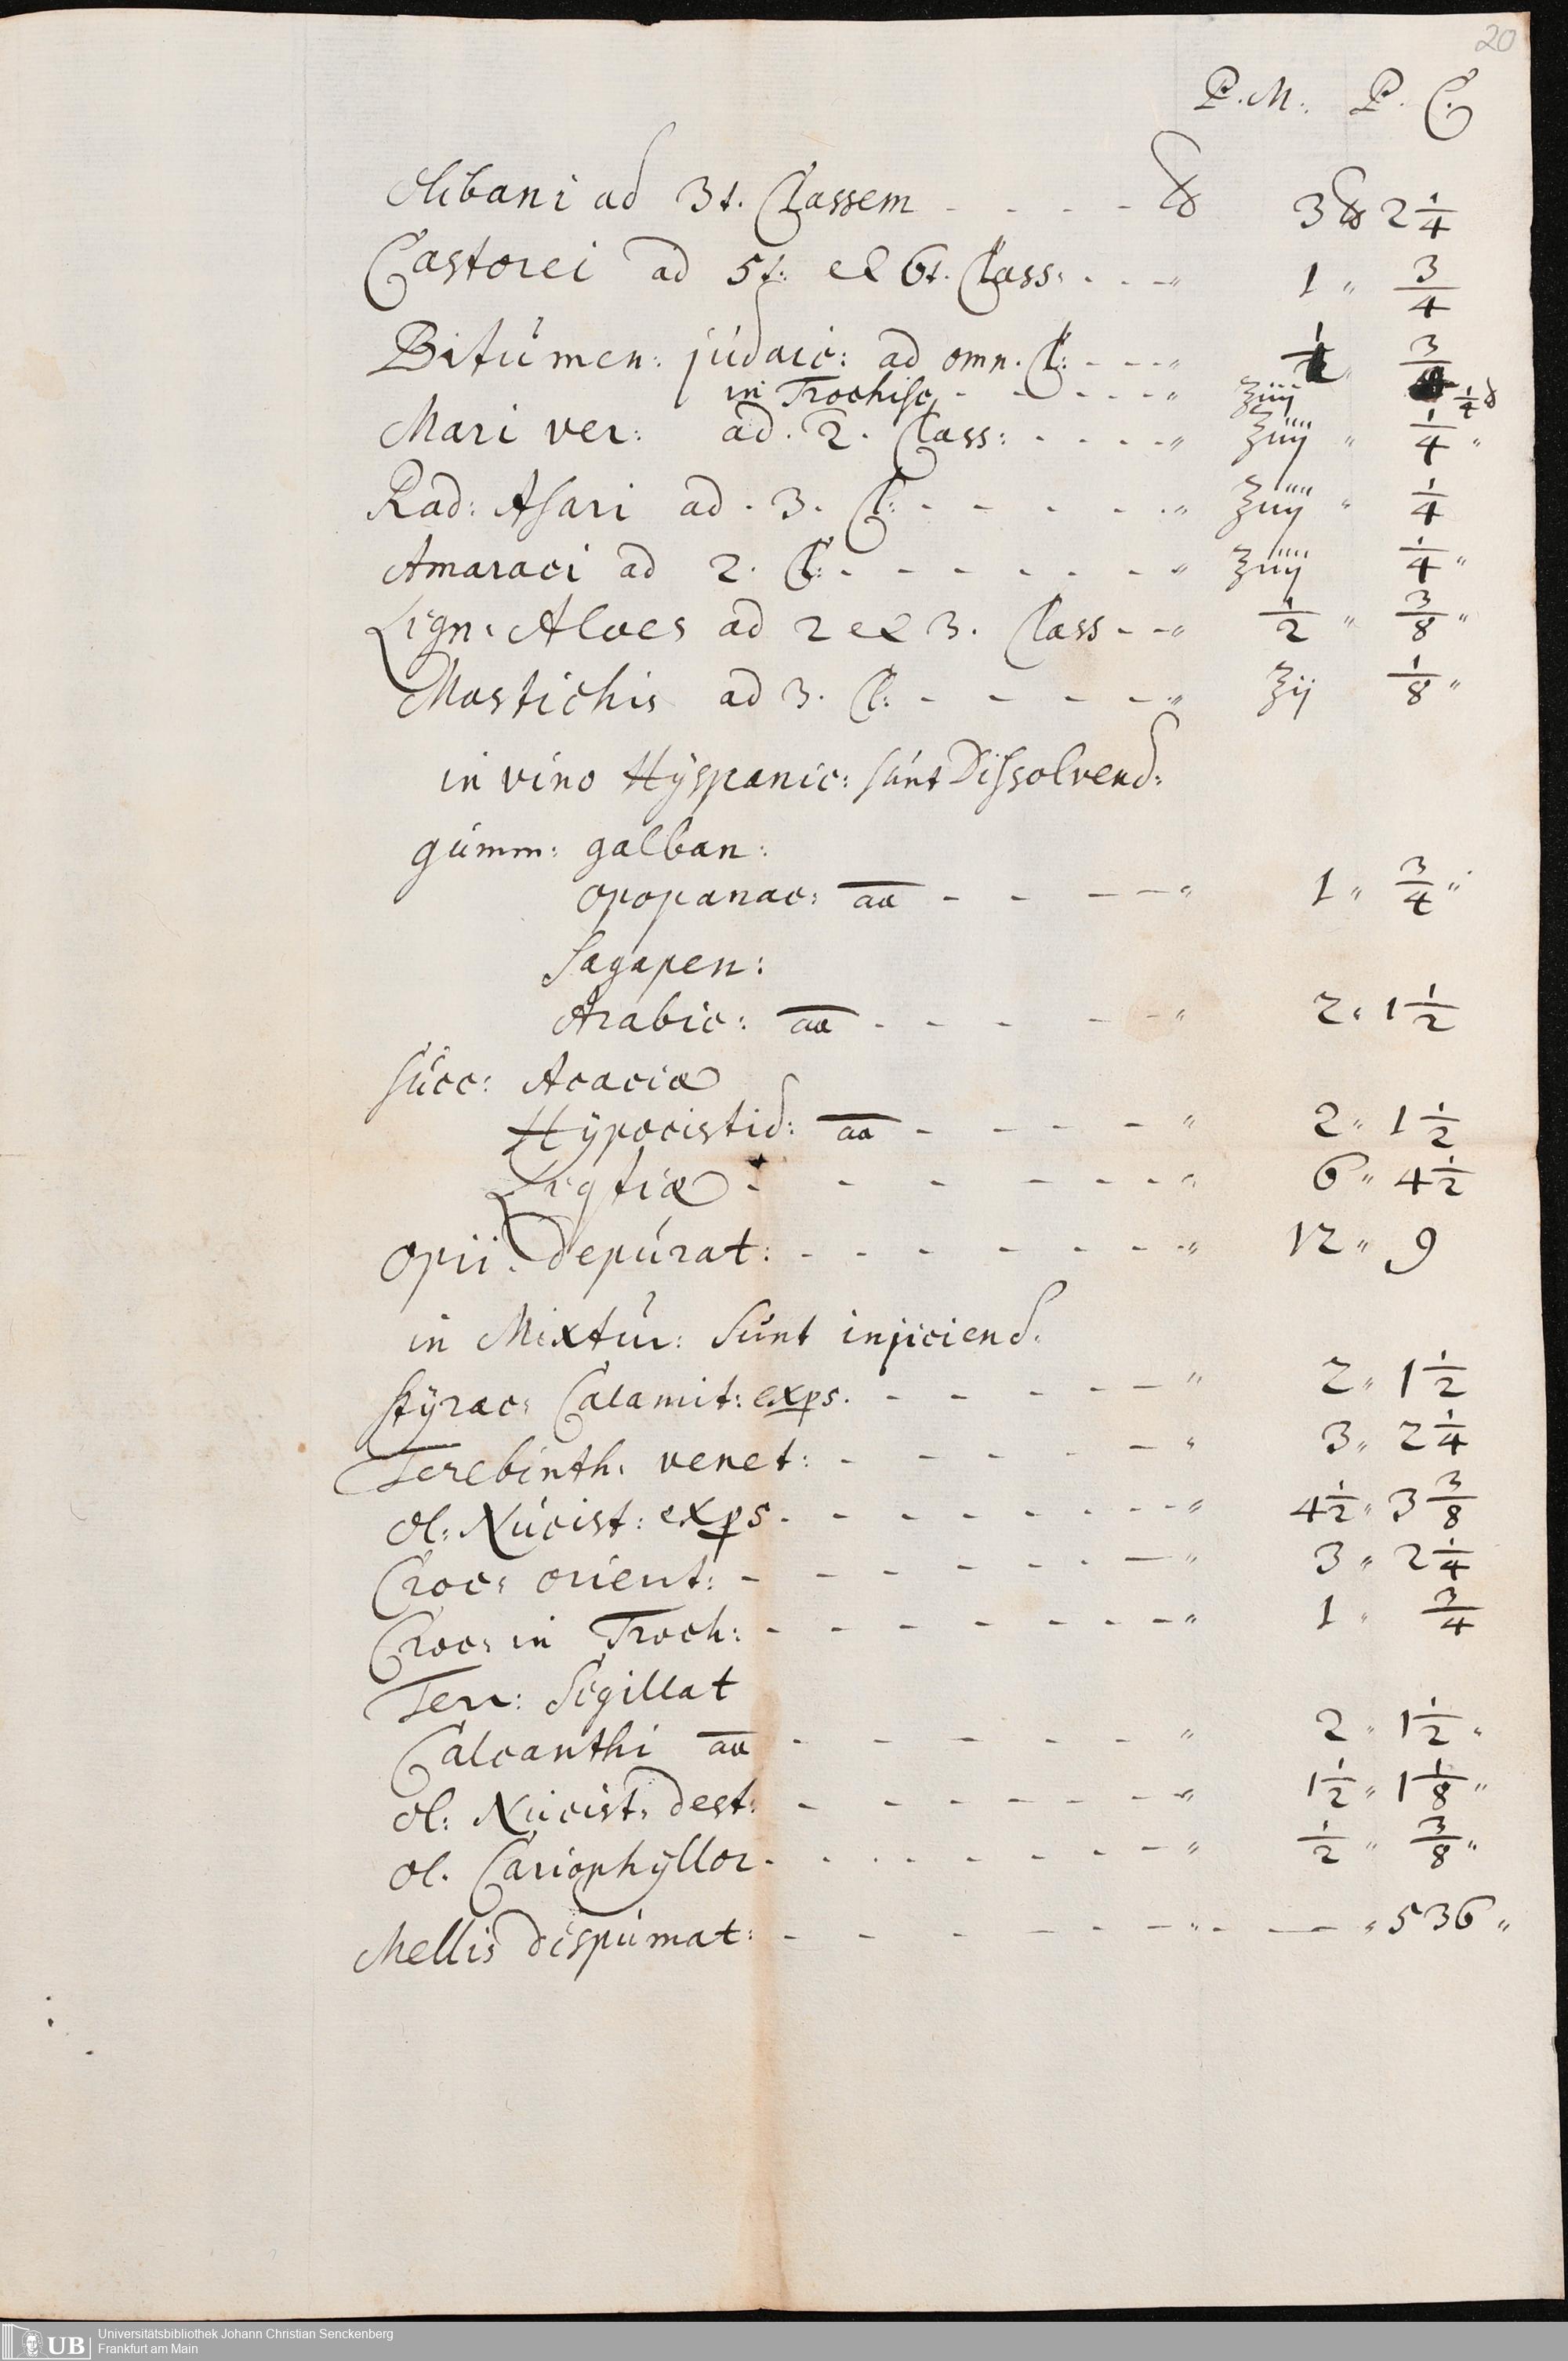 20
P. M. P. C.
Olibani ad 3t. Classem - - - - ℔ 3 ℔ 2 1/4
Castorei ad 5t: et 6t. Class: - - - " 1 " 3/4
Bitúmen: júdaic: ad omn. Cl: - - - " 3/8
in Trochisc, - - - - - " ʒiiij 1/4 ℔
Mari ver: ad. 2. Class: - - - - " ʒiiij " 1/4 "
Rad: Asari ad. 3. Cl: - - - - - " ʒiiij " 1/4
Amaraci ad 2. Cl: - - - - - - " ʒiiij 1/4 "
Lign: Aloes ad 2 et 3. Class - - " 1/2 " 3/8 "
Mastichis ad 3. Cl: - - - - - " ʒij 1/8 "
in vino Hÿspanic: súnt Dissolvend:
gúmm: galban:
opopanac: aa - - - - " 1 " 3/4 "
Sagapen:
Arabic: aa - - - - - " 2 " 1 1/2
Súcc: Acaciæ
Hÿpocistid: aa - - - - - " 2 " 1 1/2
Liqtiæ - - - - - - - " 6 " 4 1/2
Opii. depúrat: - - - - - - - " 12 " 9
in Mixtúr: Súnt injiciend.
Stÿrac: Calamit: exps. - - - - - " 2 " 1 1/2
Terebinth: venet: - - - - - - " 3 " 2 1/4
Ol: Núcist: exps. - - - - - - - " 4 1/2 " 3 3/8
Croc: orient: - - - - - - - " 3 " 2 1/4
Croc: in Troch: - - - - - - - " 1 " 3/4
Terr: Sigillat
Calcanthi aa - - - - - - " 2 " 1 1/2 "
Ol: Núcist: dest: - - - - - - - " 1 1/2 " 1 1/8 "
Ol. Cariophÿllor - - - - - - - " 1/2 " 3/8 "
Mellis dispúmat: - - - - - - " - — " 536 "
UB Universitätsbibliothek Johann Christian Senckenberg
Frankfurt am Main